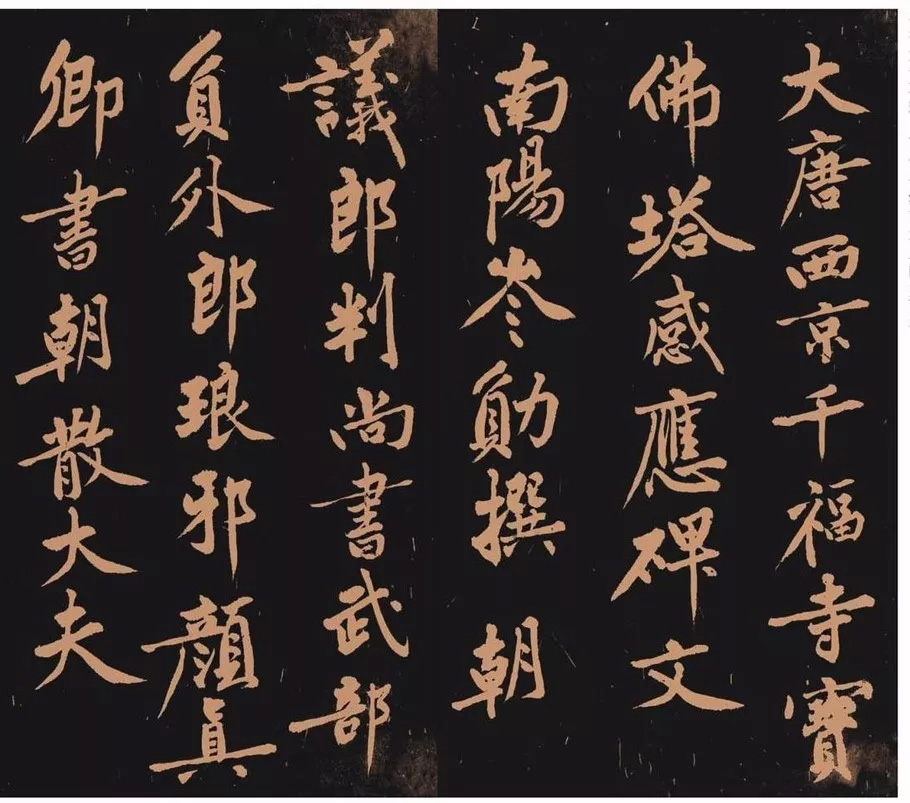 大唐西京千福寺寶
佛塔感應碑文
南陽岑勛撰 朝
議郎判尚書武部
負外郎琅邪顏真
卿書朝散大夫